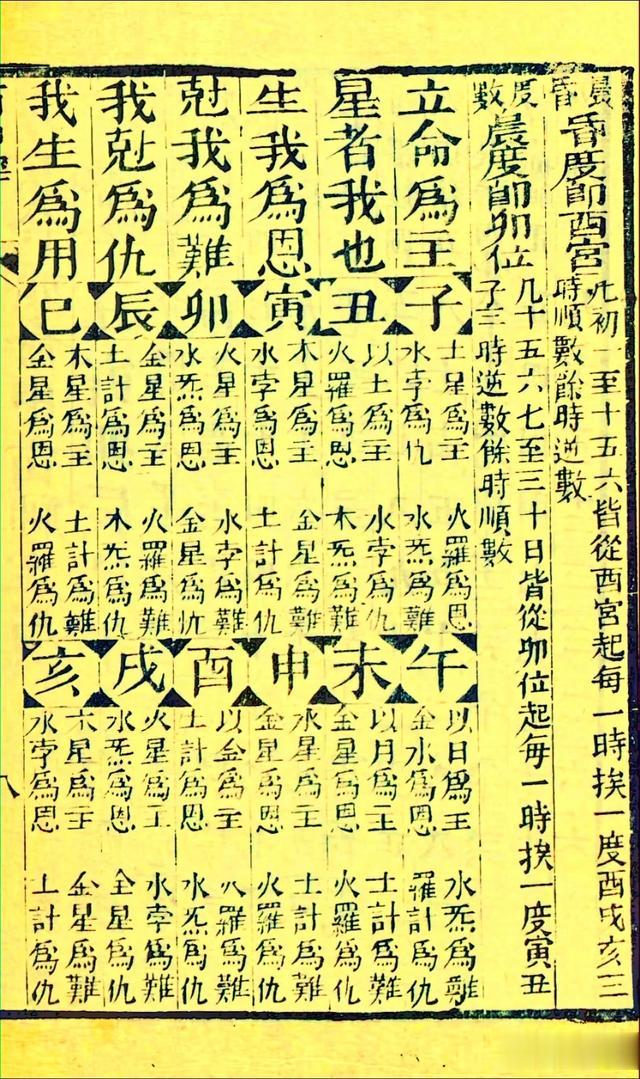 晨昏
昏度卽酉宮
凡初一至十五六皆從酉宮起每一時挨一度酉戌亥三
時順數餘時逆數
度數
晨度卽卯位
几十五六七至三十日皆從卯位起每一時挨一度寅丑
子三時逆數餘時順數
立命爲主
星者我也
生我爲恩
尅我爲難
我尅爲仇
我生爲用
子
土星爲主 火羅爲恩
水孛爲仇 水炁爲難
丑
以土爲主 水孛爲仇
火羅爲恩 木炁爲難
寅
木星爲主 金星爲難
水孛爲恩 土計爲仇
卯
火星爲主 水孛爲難
水炁爲恩 金星爲仇
辰
金星爲主 火羅爲難
土計爲恩 木炁爲仇
巳
木星爲主 土計爲難
金星爲恩 火羅爲仇
午
以日爲主 水炁爲難
金水爲恩 羅計爲仇
未
以月爲主 土計爲難
金星爲恩 火羅爲仇
申
水星爲主 土計爲難
金星爲恩 火羅爲仇
酉
以金爲主 火羅爲難
土計爲恩 水炁爲仇
戌
火星爲主 水孛爲難
水炁爲恩 金星爲仇
亥
木星爲主 金星爲難
水孛爲恩 土計爲仇
八